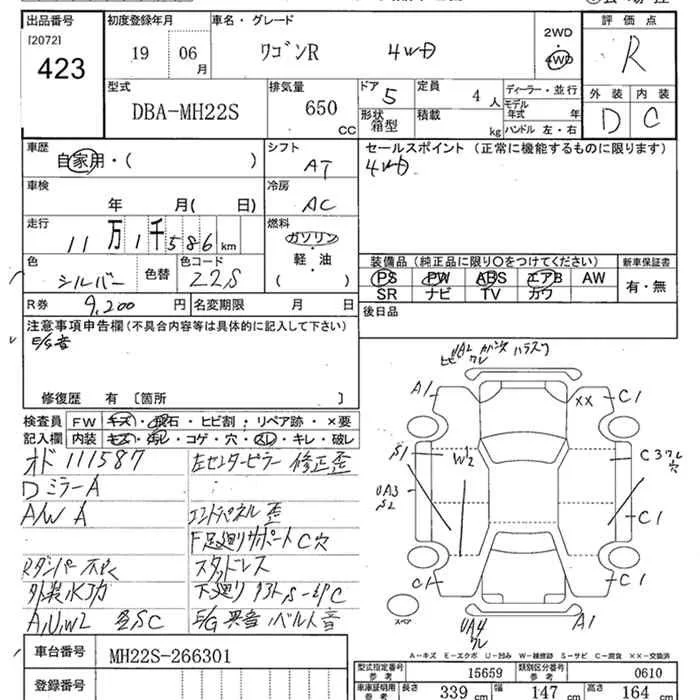 出品番号
[2072]
423
初度登録年月
19 06 月
車名・グレード
ワゴンR 4WD
2WD
4WD
評価点
R
外装 内装
D C
型式
DBA-MH22S
排気量
650 CC
ドア 5
形状
箱型
定員
4 人
積載
kg
ディーラー・並行
モデル
年式 年
ハンドル 左・右
車歴
自家用・( )
シフト
AT
セールスポイント (正常に機能するものに限ります)
4WD
車検
年 月( 日)
冷房
AC
走行
11 万 1 千 586 km
燃料
ガソリン
軽・油
( )
色
シルバー
色替
色コード
Z2S
装備品(純正品に限り○をつけてください)
PS PW ABS エアB AW
SR ナビ TV カワ
新車保証書
有・無
R券 9,200 円
名変期限 月 日
後日品
注意事項申告欄(不具合内容等は具体的に記入して下さい)
E/G音
修復歴 有 [箇所 ]
検査員
記入欄
FW キズ・飛石・ヒビ割・リペア跡・×要
内装 キズ・汚レ・コゲ・穴・スレ・キレ・破レ
オド 111587
左センターピラー 修正歪
Dミラー A
A/W A
エンドパネル 歪
F足廻りサポート C穴
スタッドレス
外装
E/G 異音 ベルト音
A1
C1
XX
S1
W2
C3
UA3
S2
C1
C1
C1
UA4
A1
スペア
A-キズ E-エクボ U-凹み W-補修跡 S-サビ C-腐食 XX-交換済
車台番号
MH22S-266301
登録番号
型式指定番号
参考
15659
類別区分番号
参考
0610
車庫証明用
参考
長さ 339 cm
幅 147 cm
高さ 164 cm